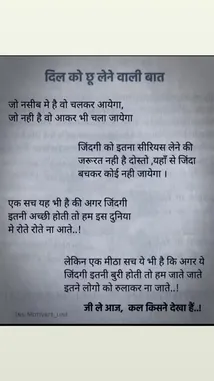 दिल को छू लेने वाली बात
जो नसीब मे है वो चलकर आयेगा,
जो नही है वो आकर भी चला जायेगा
जिंदगी को इतना सीरियस लेने की
जरूरत नही है दोस्तो ,यहाँ से जिंदा
बचकर कोई नही जायेगा ।
एक सच यह भी है की अगर जिंदगी
इतनी अच्छी होती तो हम इस दुनिया
मे रोते रोते ना आते..!
लेकिन एक मीठा सच ये भी है कि अगर ये
जिंदगी इतनी बुरी होती तो हम जाते जाते
इतने लोगो को रुलाकर ना जाते..!
जी ले आज, कल किसने देखा हैं..।